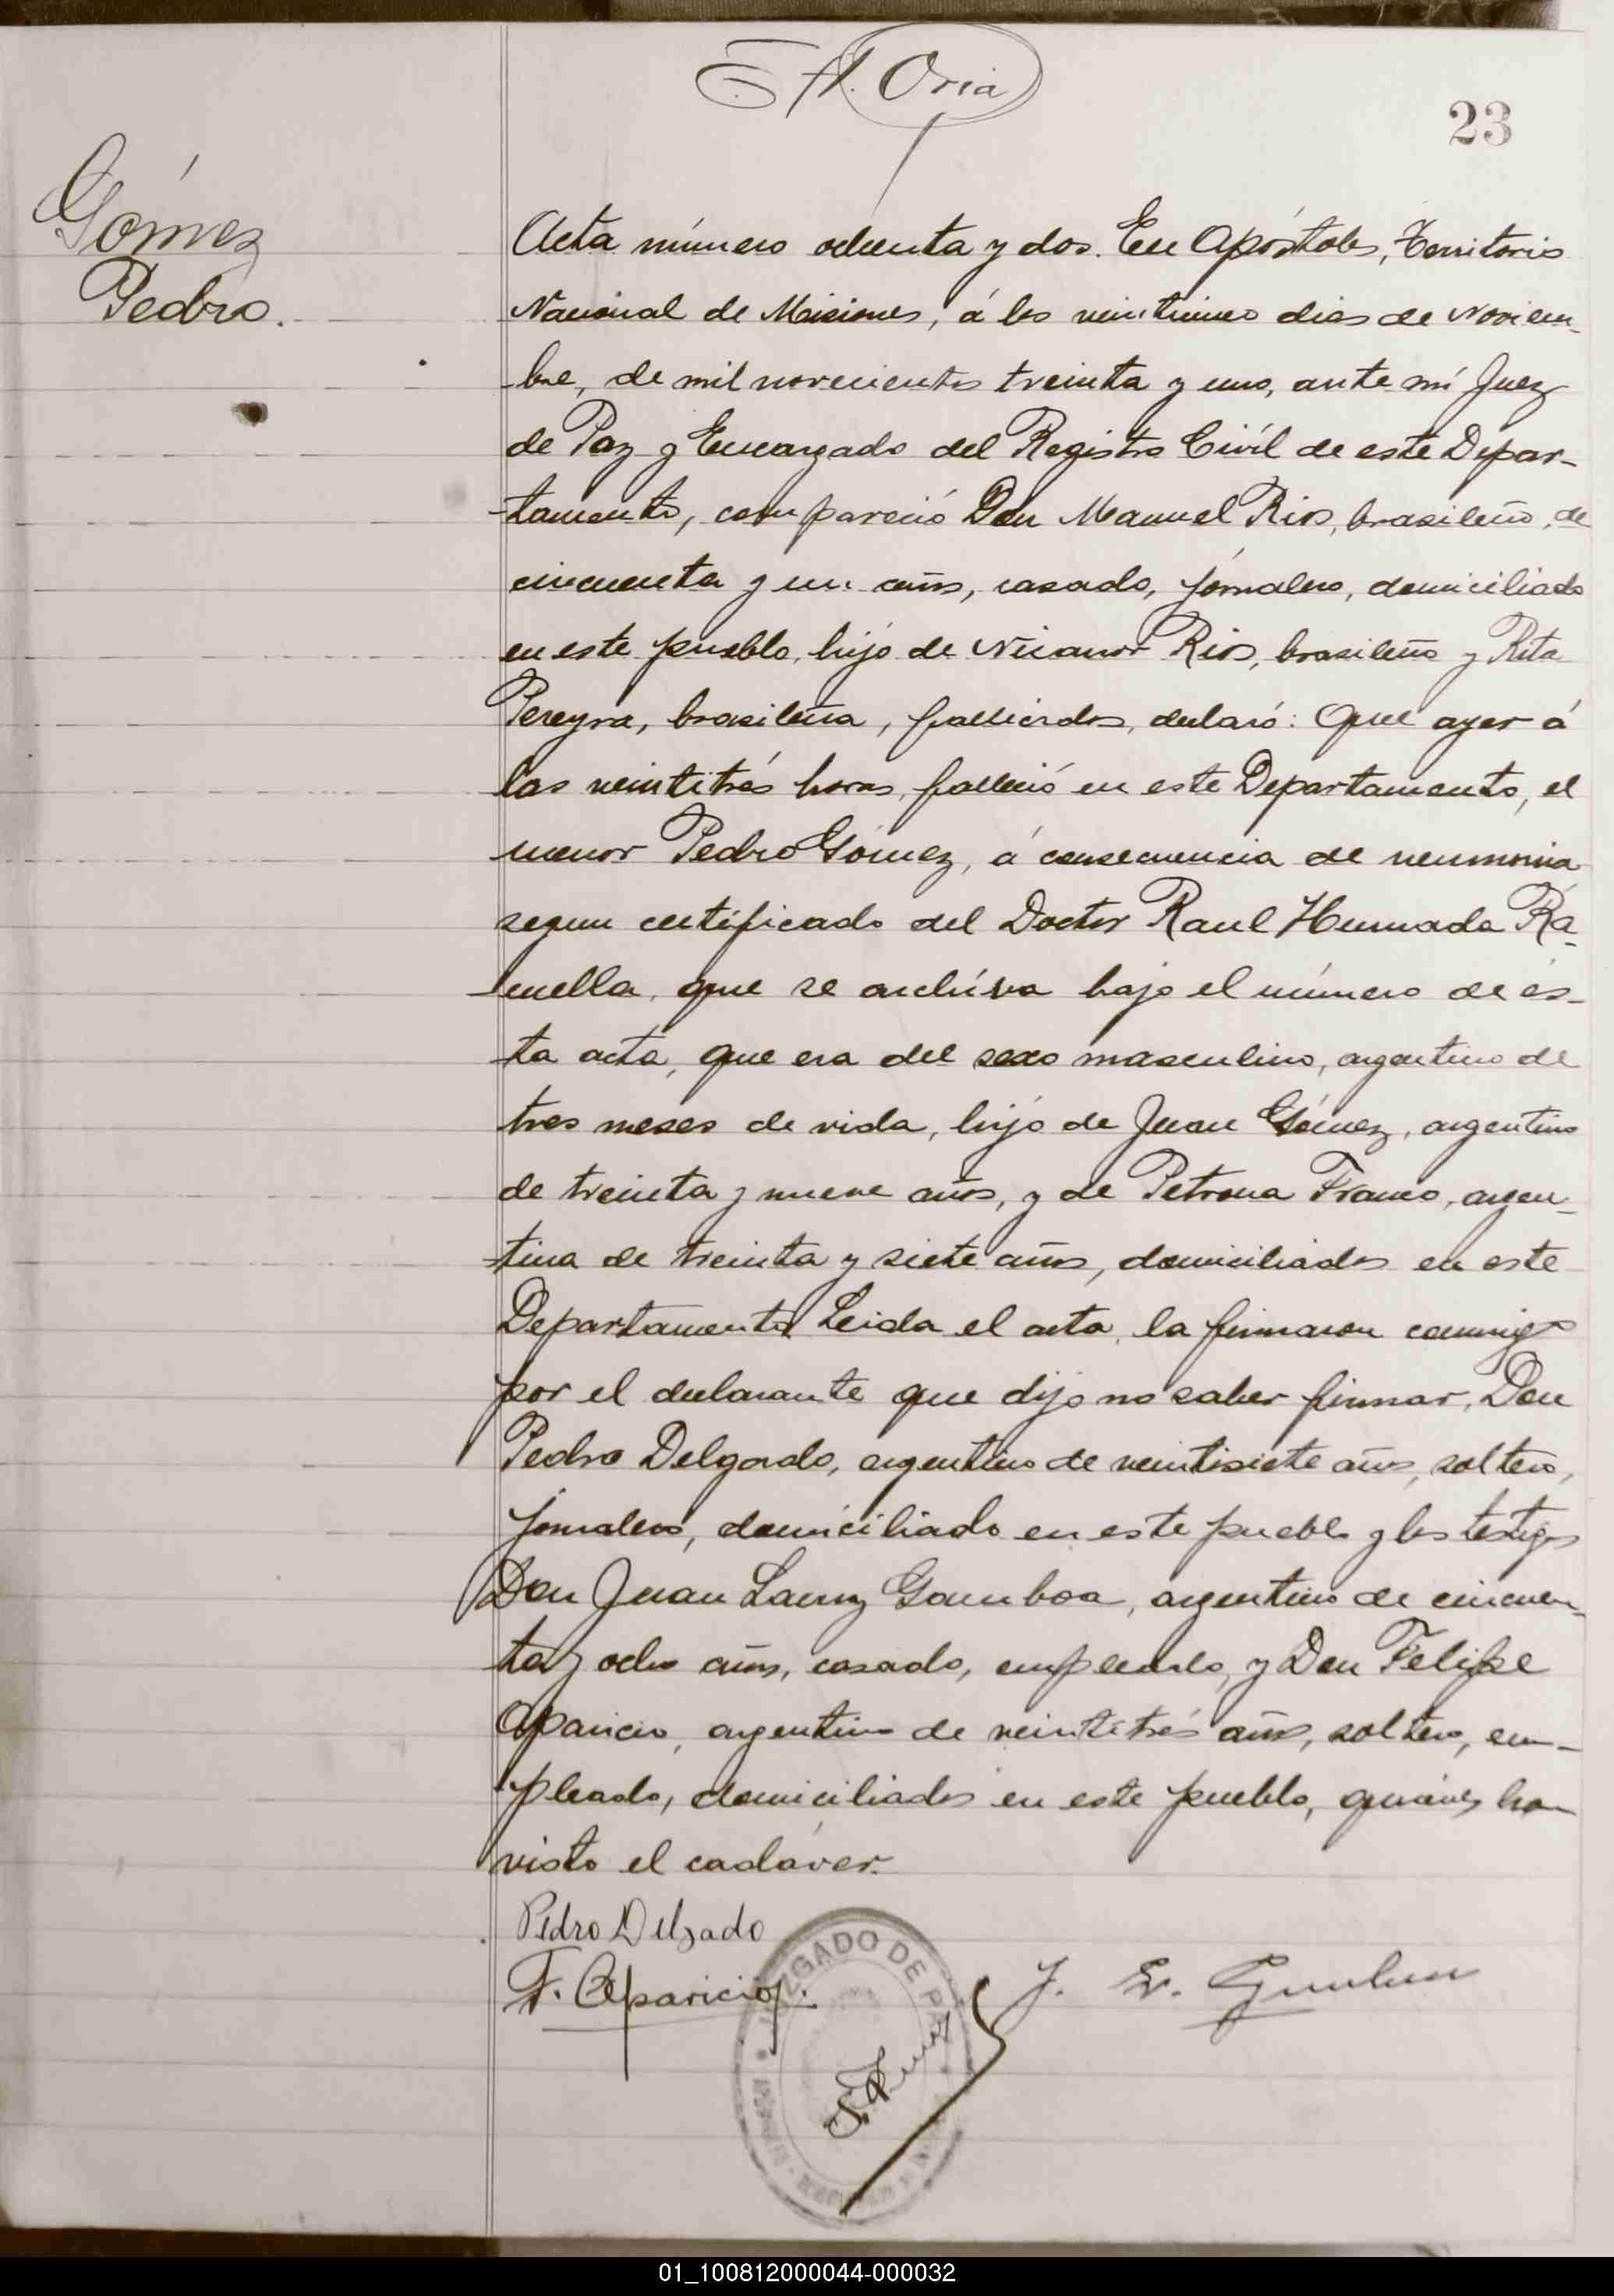 A. Oria
23
Gómez
Pedro.
Acta número ochenta y dos. En Apóstoles, Territorio
Nacional de Misiones, á los veinticinco dias de Noviem-
bre, de mil novecientos treinta y uno, ante mí Juez
de Paz y Encargado del Registro Civíl de este Depar-
tamento, compareció Don Manuel Rios, brasileño, de
cincuenta y un años, casado, jornalero, domiciliado
en este pueblo, hijo de Nicanor Rios, brasileño y Rita
Pereyra, brasileña, fallecidos, declaró: Que ayer á
las veintitrés horas, falleció en este Departamento, el
menor Pedro Gómez, á consecuencia de neumonia
segun certificado del Doctor Raul Hurmada Ra-
mella, que se archiva bajo el número de és-
ta acta, que era del sexo masculino, argentino de
tres meses de vida, hijo de Juan Gómez, argentino
de treinta y nueve años, y de Petrona Franco, argen-
tina de treinta y siete años, domiciliados en este
Departamento. Leida el acta, la firmaron conmigo
por el declarante que dijo no saber firmar, Don
Pedro Delgado, argentino de veintisiete años, soltero,
jornalero, domiciliado en este pueblo y los testigos
Don Juan Gamboa, argentino de cincuen-
ta y ocho años, casado, empleado, y Don Felipe
Aparicio, argentino de veintitrés años, soltero, em-
pleado, domiciliados en este pueblo, quienes han
visto el cadáver.
Pedro Delgado
F. Aparicio
JUZGADO DE P
01_100812000044-000032